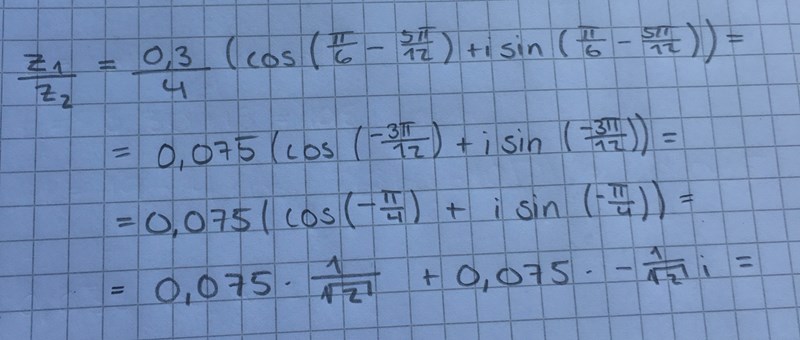 z₁/z₂ = 0,3/4 (cos(π/6 − 5π/12) + i sin(π/6 − 5π/12)) =
= 0,075 (cos(−3π/12) + i sin(−3π/12)) =
= 0,075 (cos(−π/4) + i sin(−π/4)) =
= 0,075 · 1/√2 + 0,075 · −1/√2 i =